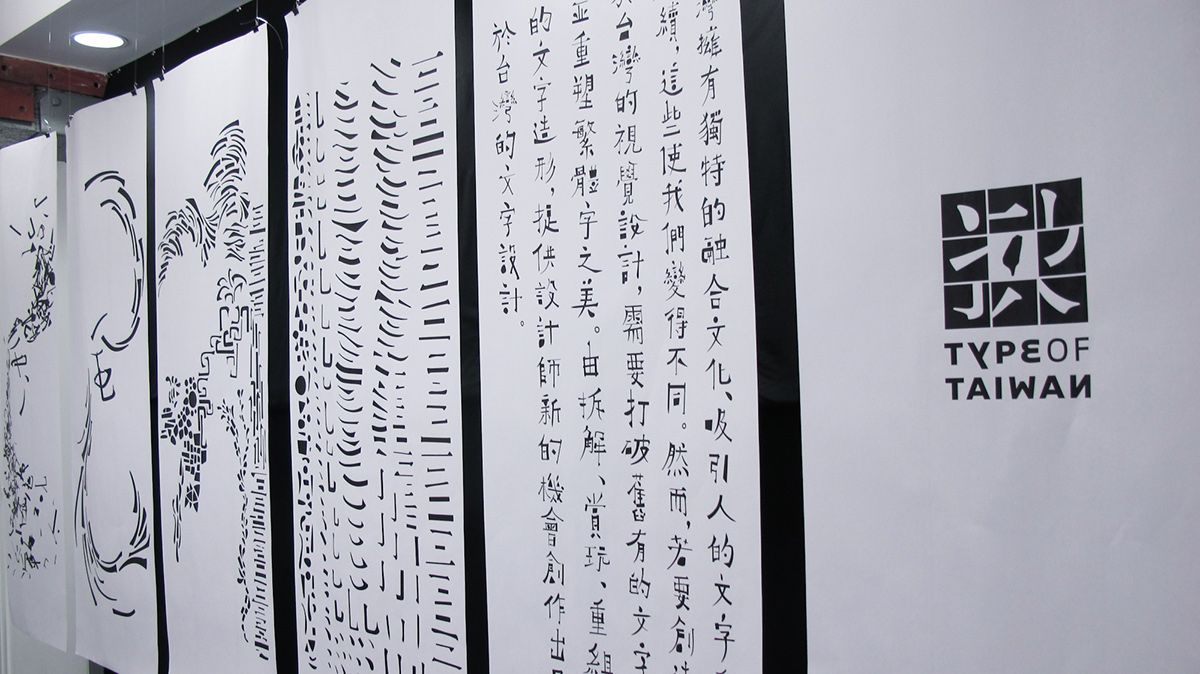 灣擁有獨特的融合文化、吸引人的文字
續,這些使我們變得不同。然而,若要創
台灣的視覺設計,需要打破舊有的文字
並重塑繁體字之美。由拆解、賞玩、重組
的文字造形,提供設計師新的機會創作出
於台灣的文字設計。
TYPE OF
TAIWAN